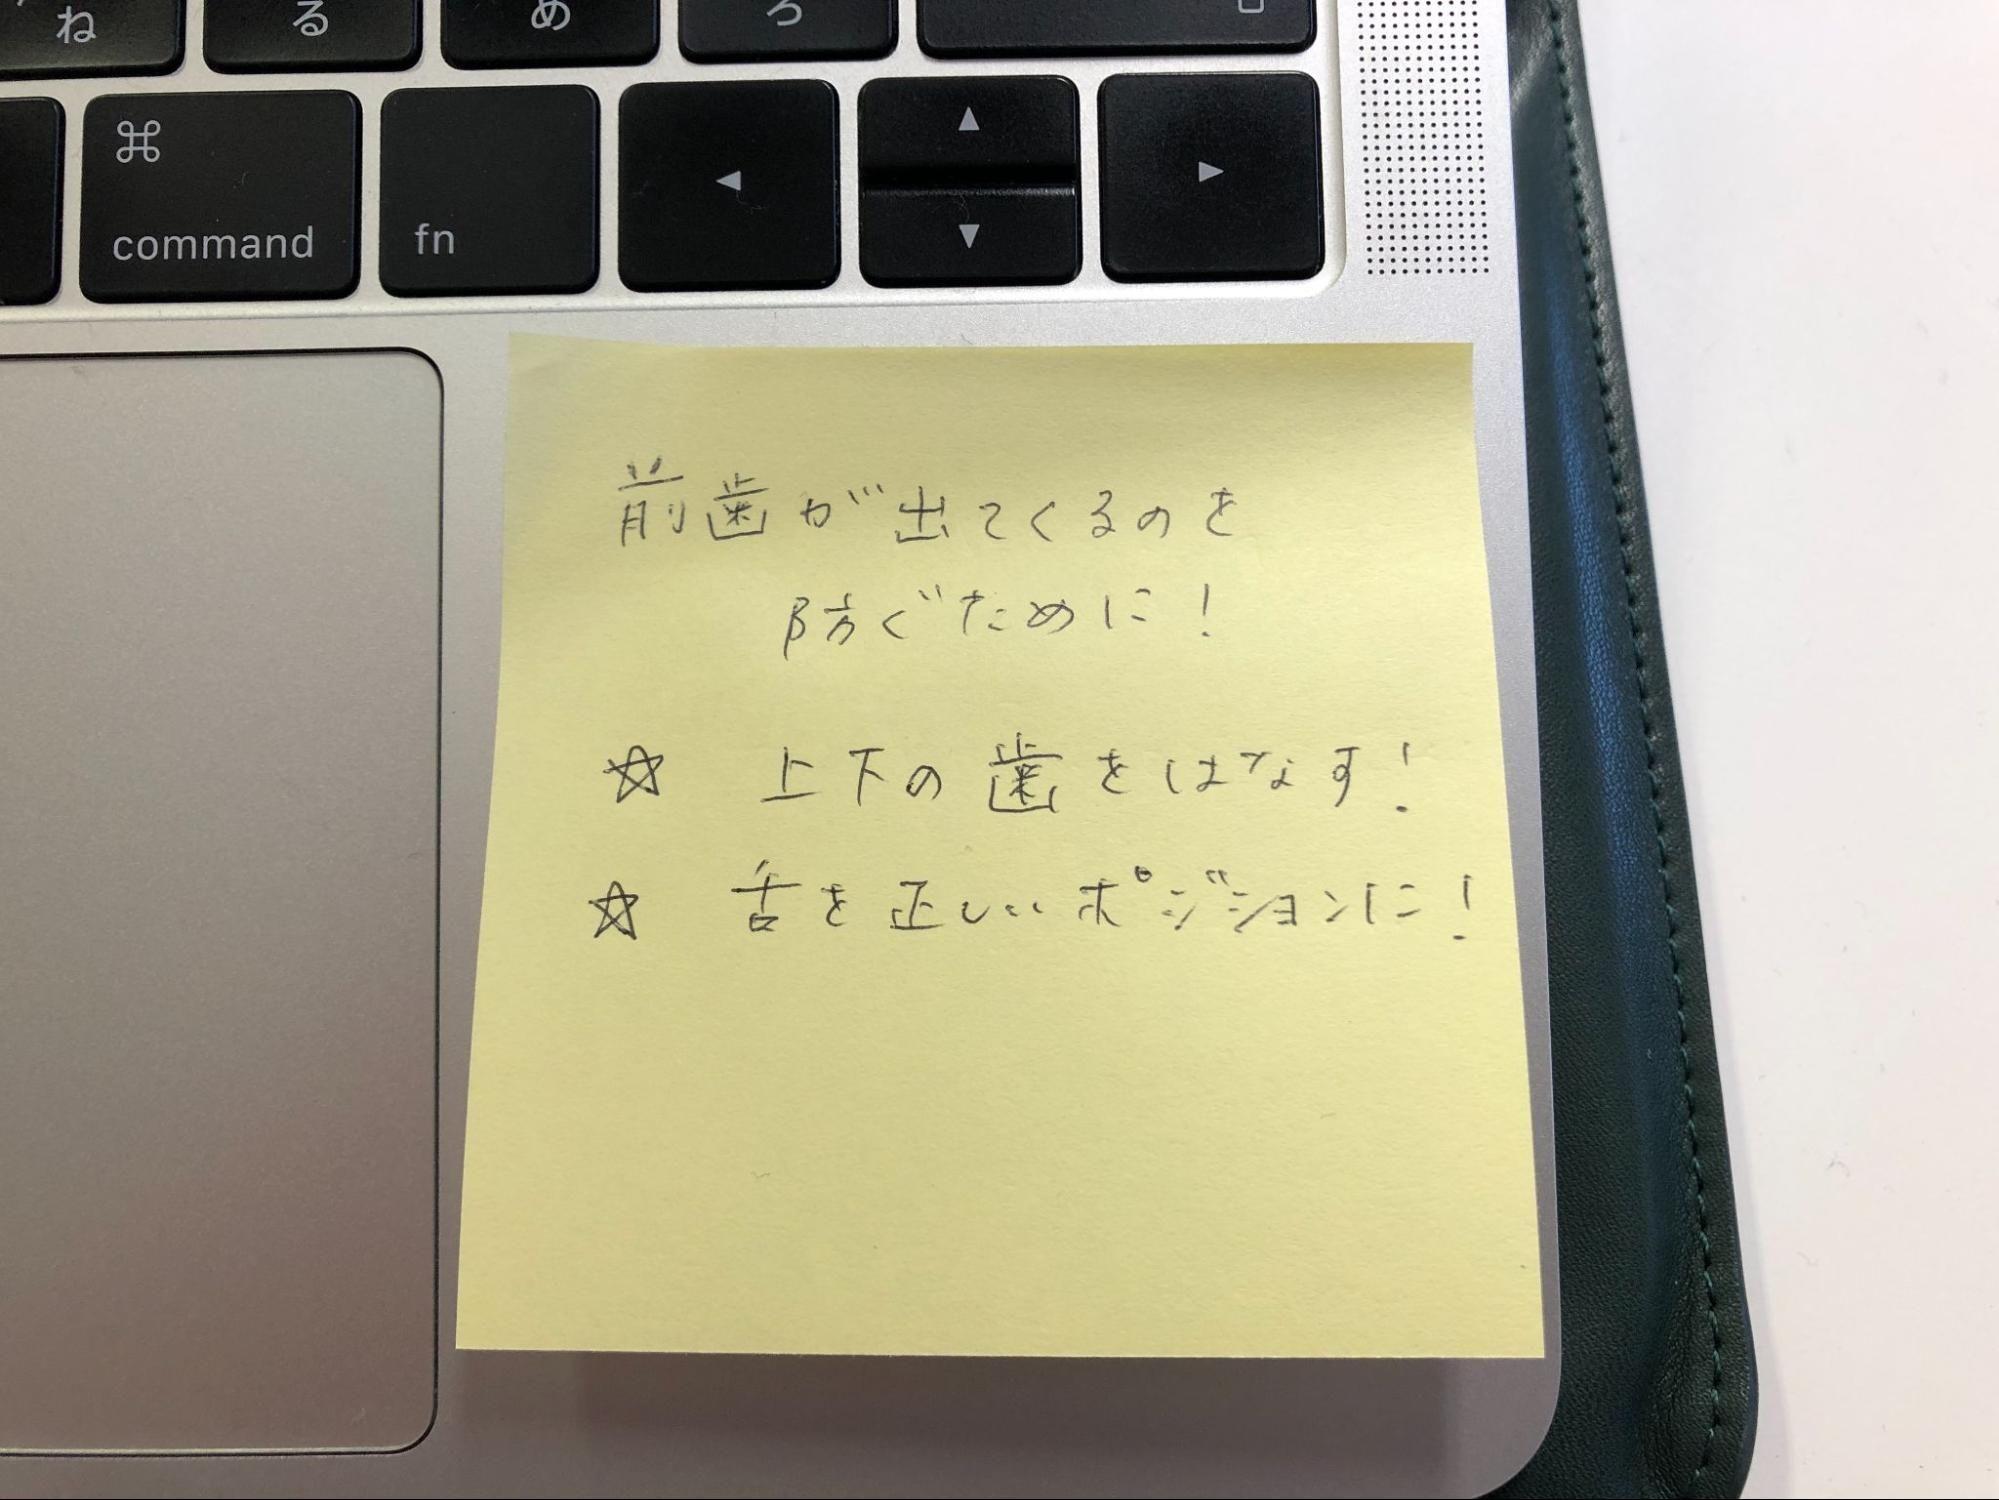 ね る め ろ
⌘ ▲
◀ ▶
command fn ▼
前歯が出てくるのを
防ぐために!
☆ 上下の歯をはなす!
☆ 舌を正しいポジションに!